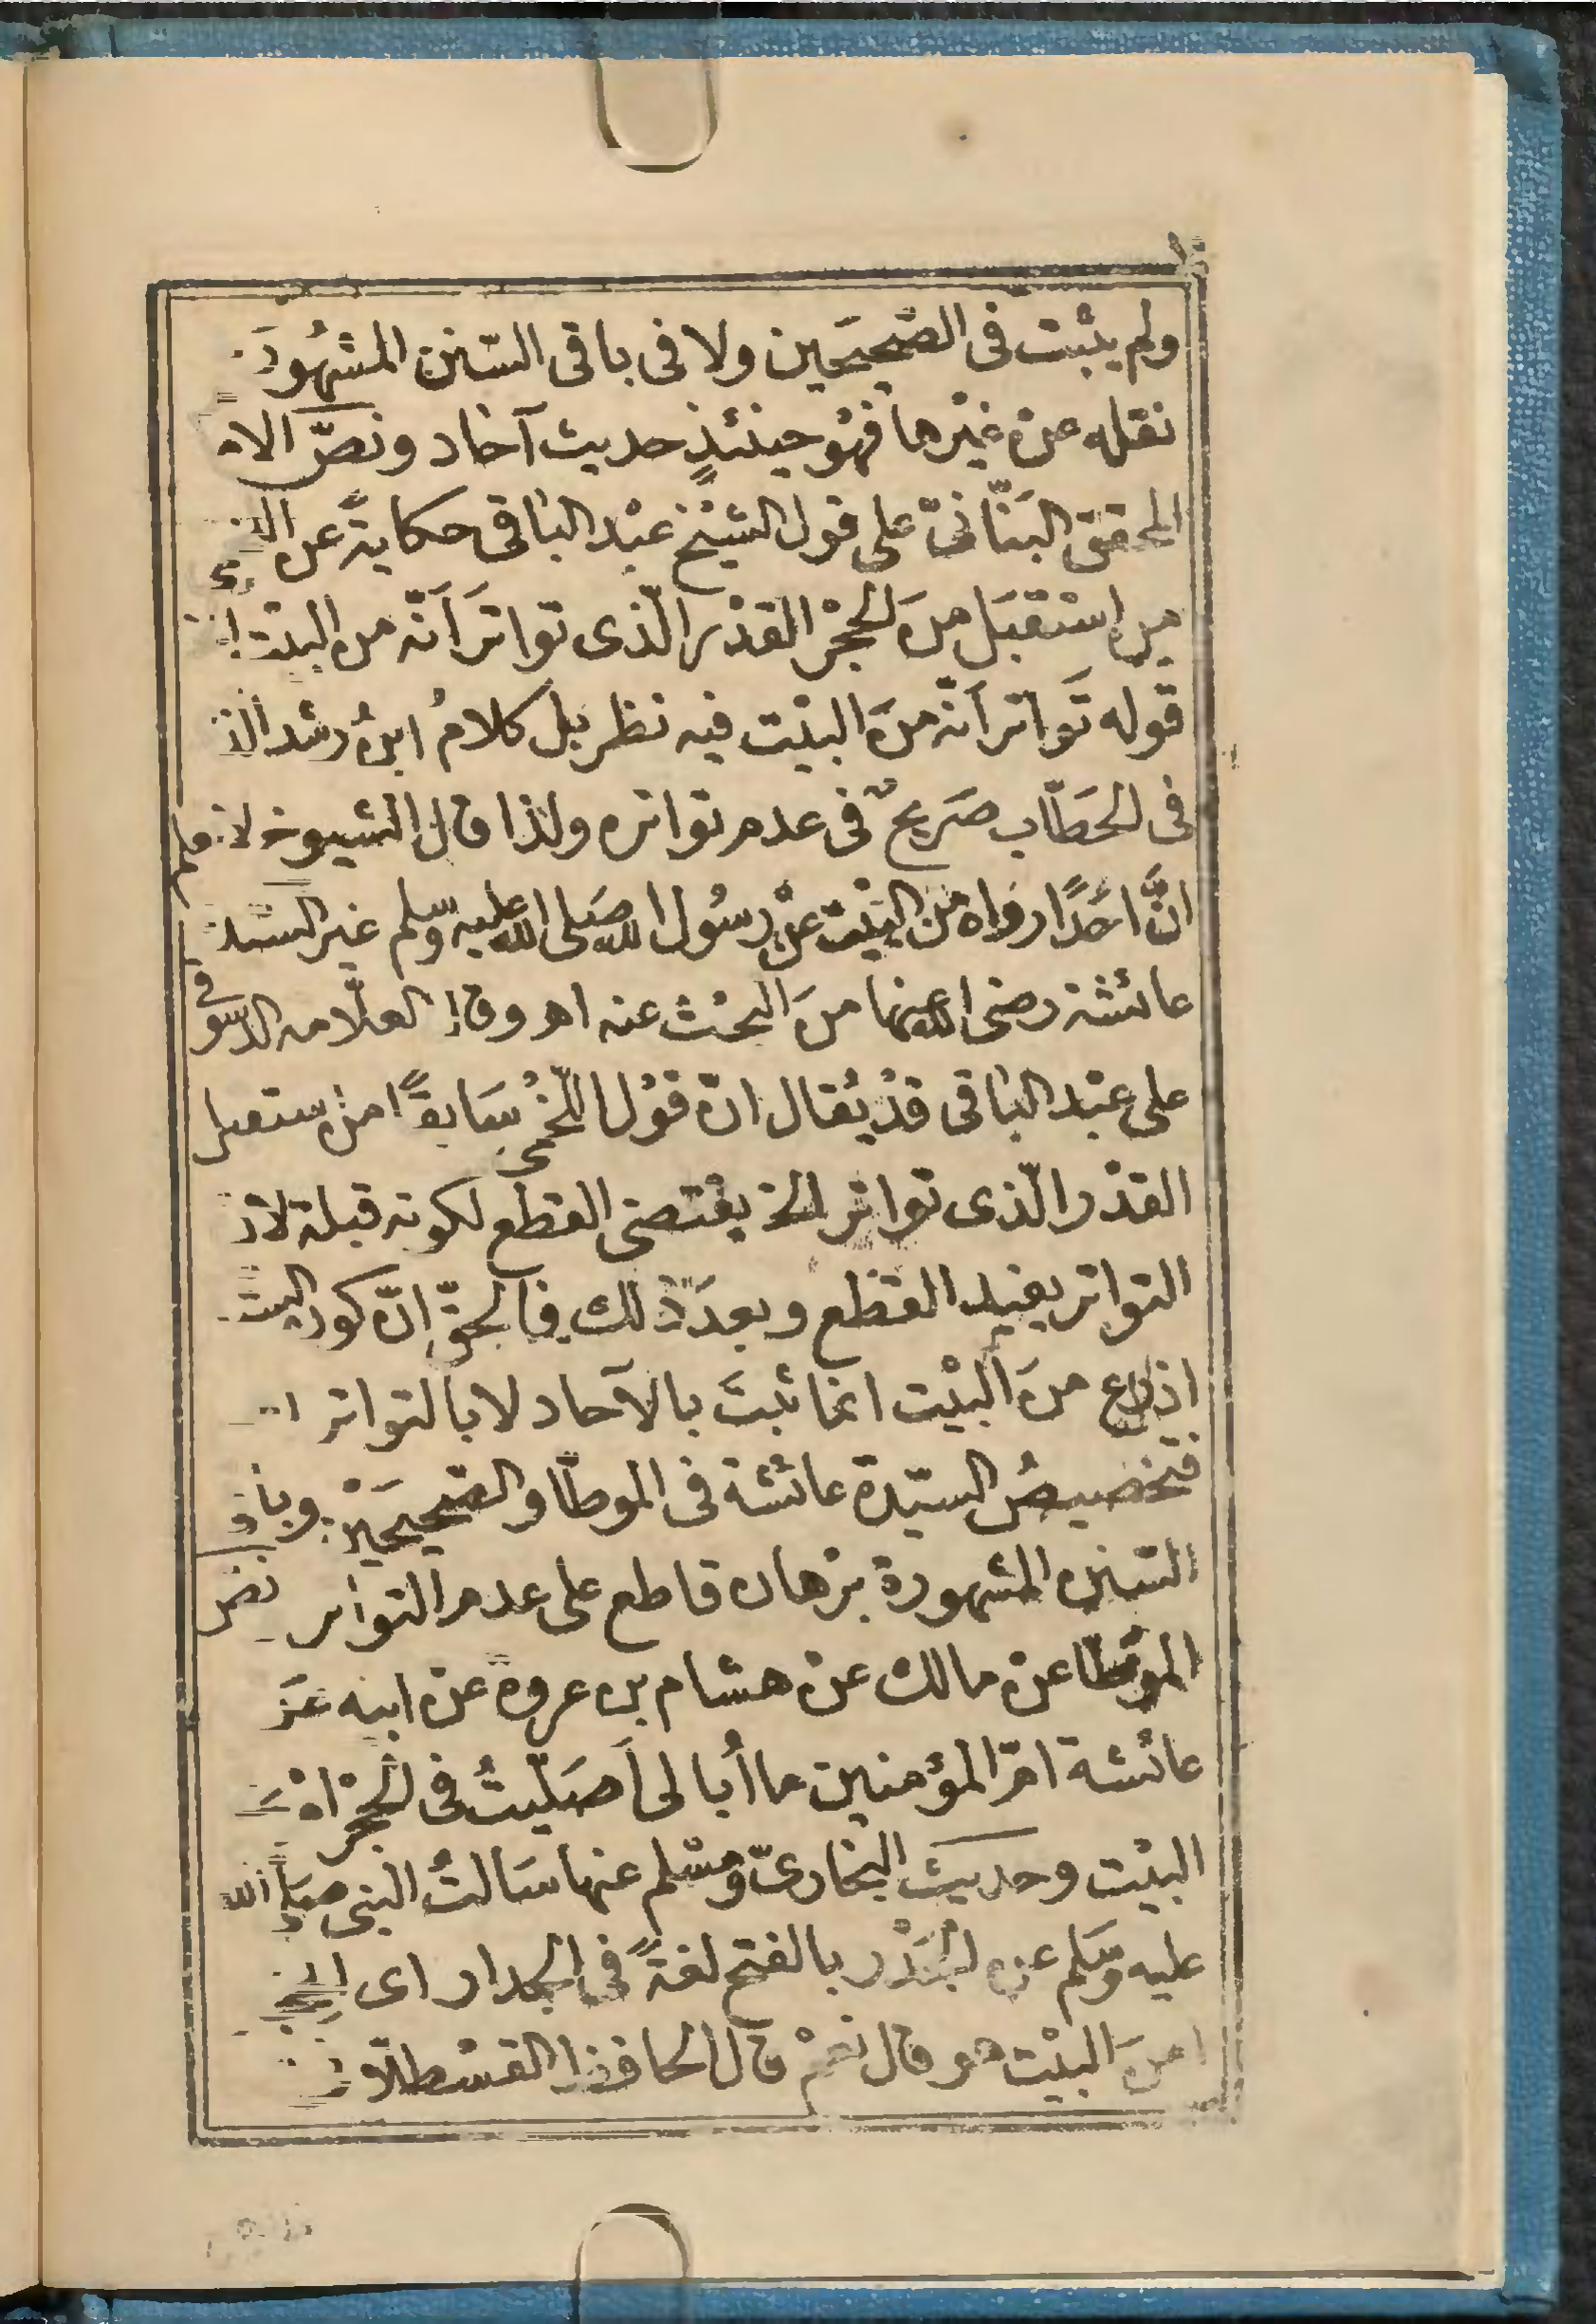 ولم يثبت فى الصّحيحَين ولا فى باقى السّنن المشهُورَة
نقله عن غيْرها فهُو حينئذٍ حديث آحاد ونصّ
المحقق البَنّانىّ على قول الشيْخ عبْد البْاقى حكايةً عن
من اسْتقبَل منَ الحِجْر القدْر الّذى تواترَ اَنّه من البيْت
قوله تَواتر اَنّه منَ البيْت فيه نظر بل كلامُ ابنُ رشد
فى الحَطّاب صَريحٌ فى عدم تواتره ولذا قال الشيوخ لا نعلم
انَّ احَدًا رواه منَ البيْت عنْ رسُول الله صَلى الله عليه وسّلم غير السّيدة
عائشة رضى الله عنها منَ البحْث عنه اهـ وقال العلّامه الدسوقى
على عبْد البْاقى قدْ يُقال انّ قوْل اللّخْمى سَابقًا منْ ستقبل
القدْر الّذى تواتر الخ يقتضى القطع لكونه قبلة لانّ
التواتر يفيد القطع وبعدَ ذلك فالحقّ انّ كون البيت
اذرع منَ البيْت انما ثبتَ بالآحاد لا بالتواتر
فتخصيصُ السيّدة عائشة فى الموطّا والصّحيحَيْن وباقى
السّنن المشهورة برْهان قاطع على عدم التواتر نص
الموَطّا عنْ مالك عنْ هشام بن عروة عنْ ابيه عَن
عائشة امّ المؤمنين ما اُبالى اَصَلّيتُ فى الحِجْر اَمْ
البيْت وحديث البخارىّ ومسْلم عنها سَالتُ النبى صَلى الله
عليه وسَلم عن الجَدْر بالفتح لغةً فى الجدار اى
امنَ البيْت هو قال نعمْ قال الحافظ القسْطلّانى